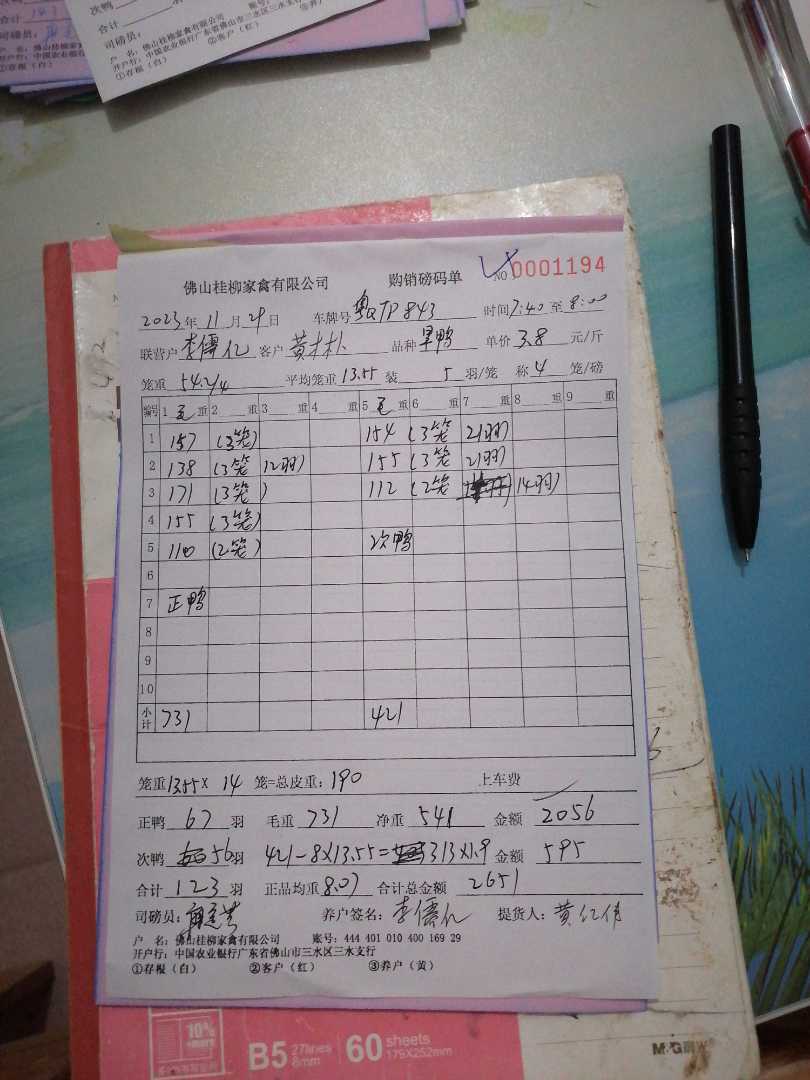 次鸭 羽
合计 羽
司磅员:
户 名: 佛山桂柳家禽有限公司
开户行: 中国农业银行广东省佛山市三水区三水支行
①存根(白) ②客户(红)
佛山桂柳家禽有限公司 购销磅码单 NO 0001194
2023年11月29日 车牌号 粤QTP843 时间7:40至8:00
联营户 李儒亿 客户 黄木朴 品种 旱鸭 单价 3.8 元/斤
笼重 54.2/4 平均笼重 13.55 装 5 羽/笼 称 4 笼/磅
编号 1 毛 重 2 重 3 重 4 重 5 毛 重 6 重 7 重 8 重 9 重
1 157 (3笼) 154 (3笼 21羽)
2 138 (3笼 12羽) 155 (3笼 21羽)
3 171 (3笼) 112 (2笼 14羽)
4 155 (3笼)
5 110 (2笼) 次鸭
6
7 正鸭
8
9
10
小计 731 421
笼重13.55× 14 笼=总皮重: 190 上车费
正鸭 67 羽 毛重 731 净重 541 金额 2056
次鸭 56羽 421-8×13.55=313×1.9 金额 595
合计 123 羽 正品均重 8.07 合计总金额 2651
司磅员: 养户签名: 李儒亿 提货人: 黄仁伟
户 名: 佛山桂柳家禽有限公司 账号: 444 401 010 400 169 29
开户行: 中国农业银行广东省佛山市三水区三水支行
①存根(白) ②客户(红) ③养户(黄)
10% +more
B5 27lines 8mm 60 sheets 179X252mm
M&G